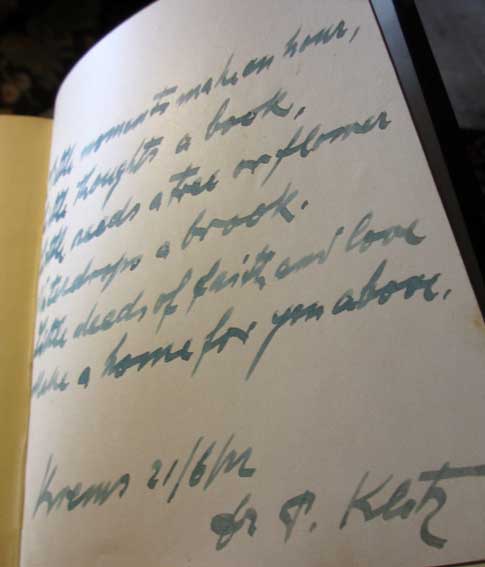 little moments make an hour,
little thoughts a book,
little seeds a tree or flower
Waterdrops a brook.
little deeds of faith and love
Make a home for you above.
Krems 21/6/
Dr P. Klotz